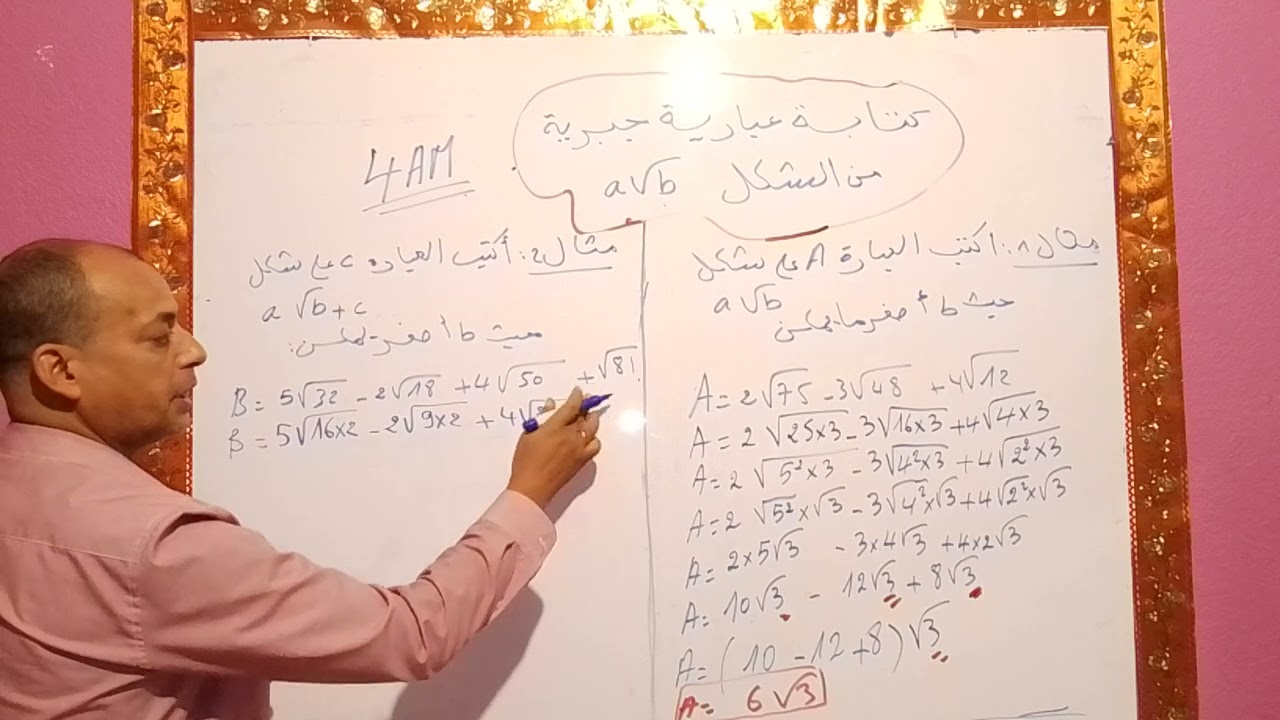 كتابة عبارية جبرية
من الشكل a√b
4AM
مثال 1: اكتب العبارة A على شكل
a√b
حيث b أصغر ما يمكن
A = 2√75 - 3√48 + 4√12
A = 2√25×3 - 3√16×3 + 4√4×3
A = 2√5²×3 - 3√4²×3 + 4√2²×3
A = 2√5²×√3 - 3√4²×√3 + 4√2²×√3
A = 2×5√3 - 3×4√3 + 4×2√3
A = 10√3 - 12√3 + 8√3
A = (10 - 12 + 8)√3
A = 6√3
مثال 2: أكتب العبارة c على شكل
a√b+c
حيث b أصغر يمكن:
B = 5√32 - 2√18 + 4√50 + √81
B = 5√16×2 - 2√9×2 + 4√2